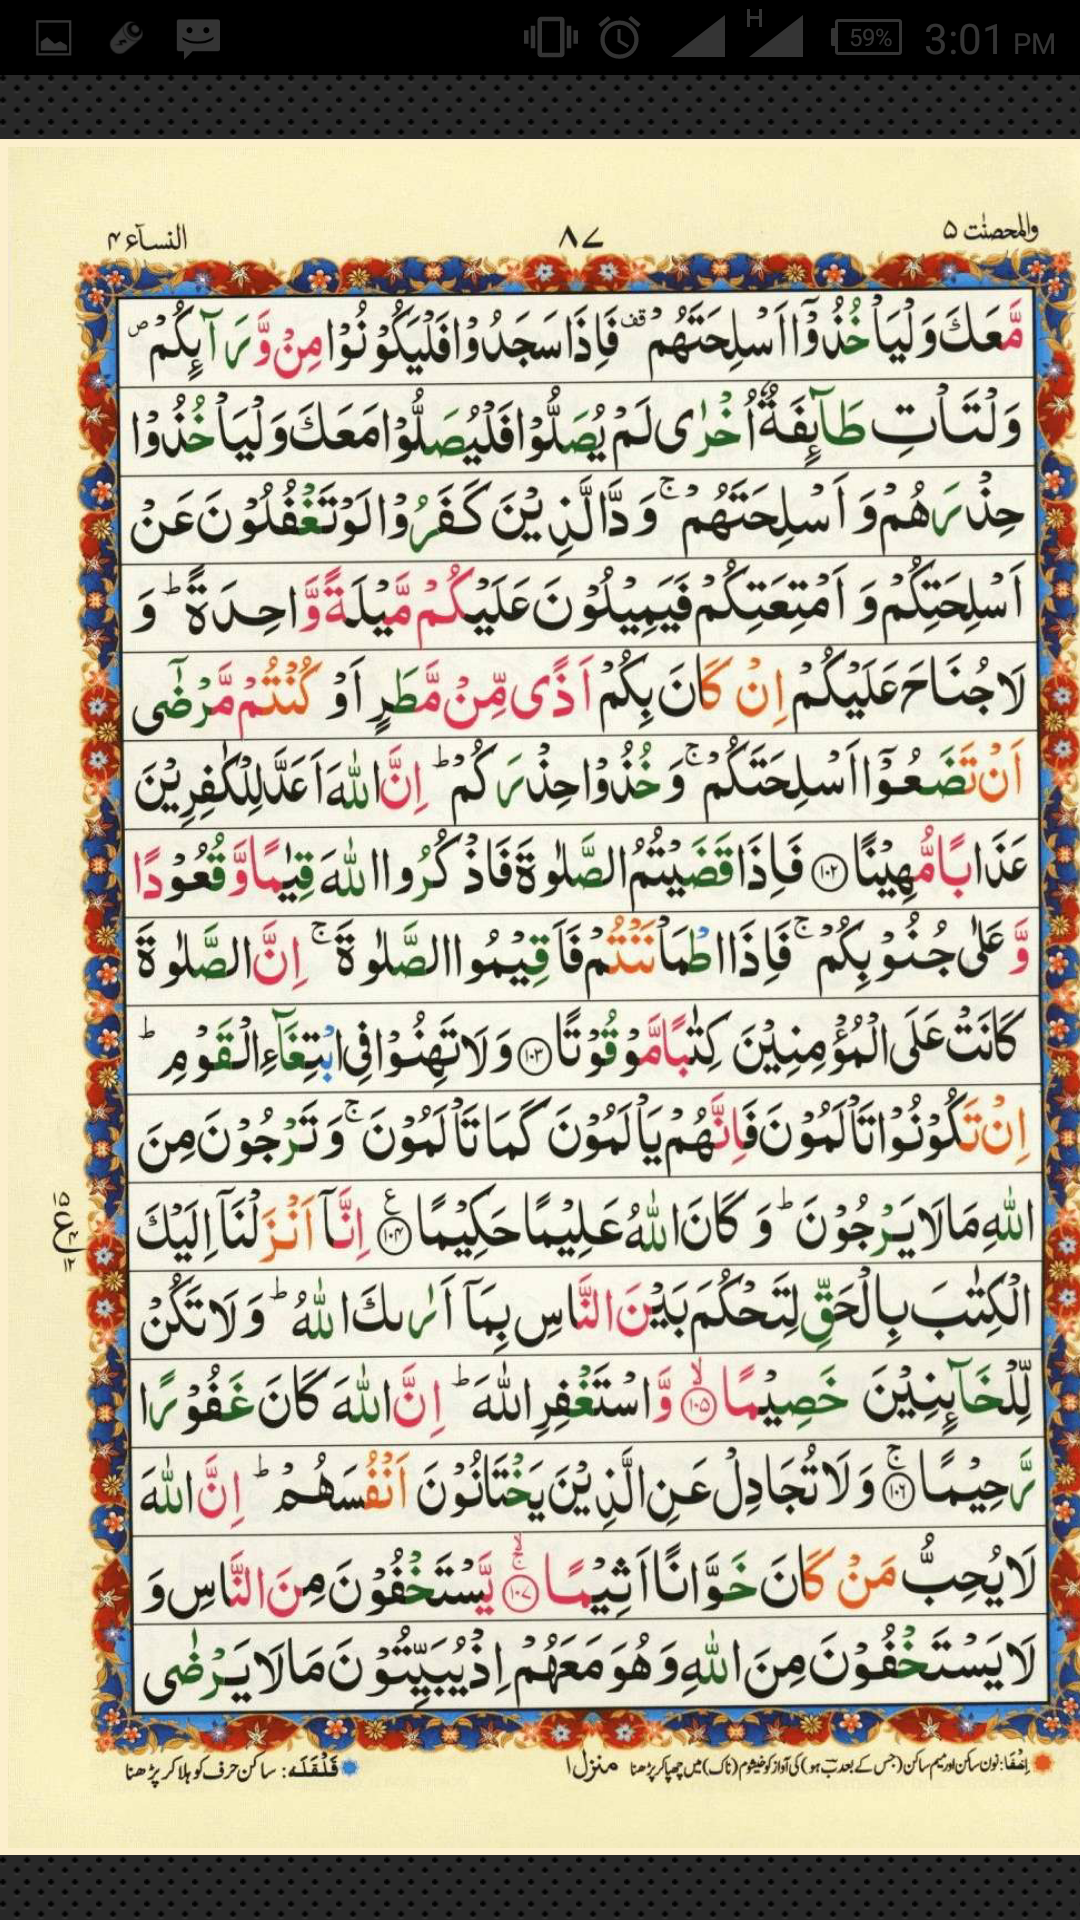 59% 3:01 PM
H
والمحصنٰت ۵
۸۷
النسآء ۴
مَّعَكَ وَلْيَاْخُذُوْۤا اَسْلِحَتَهُمْ ۫ قف فَاِذَا سَجَدُوْا فَلْيَكُوْنُوْا مِنْ وَّرَآئِكُمْ ۪ ص
وَلْتَاْتِ طَآئِفَةٌ اُخْرٰى لَمْ يُصَلُّوْا فَلْيُصَلُّوْا مَعَكَ وَلْيَاْخُذُوْا
حِذْرَهُمْ وَ اَسْلِحَتَهُمْ ۚ وَدَّ الَّذِيْنَ كَفَرُوْا لَوْ تَغْفُلُوْنَ عَنْ
اَسْلِحَتِكُمْ وَ اَمْتِعَتِكُمْ فَيَمِيْلُوْنَ عَلَيْكُمْ مَّيْلَةً وَّاحِدَةً ؕ وَ
لَا جُنَاحَ عَلَيْكُمْ اِنْ كَانَ بِكُمْ اَذًى مِّنْ مَّطَرٍ اَوْ كُنْتُمْ مَّرْضٰۤى
اَنْ تَضَعُوْۤا اَسْلِحَتَكُمْ ۚ وَ خُذُوْا حِذْرَكُمْ ؕ اِنَّ اللّٰهَ اَعَدَّ لِلْكٰفِرِيْنَ
عَذَابًا مُّهِيْنًا ۝۱۰۲ فَاِذَا قَضَيْتُمُ الصَّلٰوةَ فَاذْكُرُوا اللّٰهَ قِيٰمًا وَّقُعُوْدًا
وَّ عَلٰى جُنُوْبِكُمْ ۚ فَاِذَا اطْمَاْنَنْتُمْ فَاَقِيْمُوا الصَّلٰوةَ ۚ اِنَّ الصَّلٰوةَ
كَانَتْ عَلَى الْمُؤْمِنِيْنَ كِتٰبًا مَّوْقُوْتًا ۝۱۰۳ وَ لَا تَهِنُوْا فِى ابْتِغَآءِ الْقَوْمِ ؕ
اِنْ تَكُوْنُوْا تَاْلَمُوْنَ فَاِنَّهُمْ يَاْلَمُوْنَ كَمَا تَاْلَمُوْنَ ۚ وَ تَرْجُوْنَ مِنَ
اللّٰهِ مَا لَا يَرْجُوْنَ ؕ وَ كَانَ اللّٰهُ عَلِيْمًا حَكِيْمًا ۝۱۰۴ ع اِنَّاۤ اَنْزَلْنَاۤ اِلَيْكَ
۱۵ ع ۴ ۱۲
الْكِتٰبَ بِالْحَقِّ لِتَحْكُمَ بَيْنَ النَّاسِ بِمَاۤ اَرٰىكَ اللّٰهُ ؕ وَ لَا تَكُنْ
لِّلْخَآئِنِيْنَ خَصِيْمًا ۝۱۰۵ ۙ وَّ اسْتَغْفِرِ اللّٰهَ ؕ اِنَّ اللّٰهَ كَانَ غَفُوْرًا
رَّحِيْمًا ۝۱۰۶ ۚ وَ لَا تُجَادِلْ عَنِ الَّذِيْنَ يَخْتَانُوْنَ اَنْفُسَهُمْ ؕ اِنَّ اللّٰهَ
لَا يُحِبُّ مَنْ كَانَ خَوَّانًا اَثِيْمًا ۝۱۰۷ ۚۙ يَّسْتَخْفُوْنَ مِنَ النَّاسِ وَ
لَا يَسْتَخْفُوْنَ مِنَ اللّٰهِ وَ هُوَ مَعَهُمْ اِذْ يُبَيِّتُوْنَ مَا لَا يَرْضٰى
اِخْفَا: نون ساکن اور میم ساکن (جس کے بعد بؔ ہو) کی آواز کو خیشوم (ناک) میں چھپا کر پڑھنا
منزل ۱
قَلْقَلَه: ساکن حرف کو ہلا کر پڑھنا